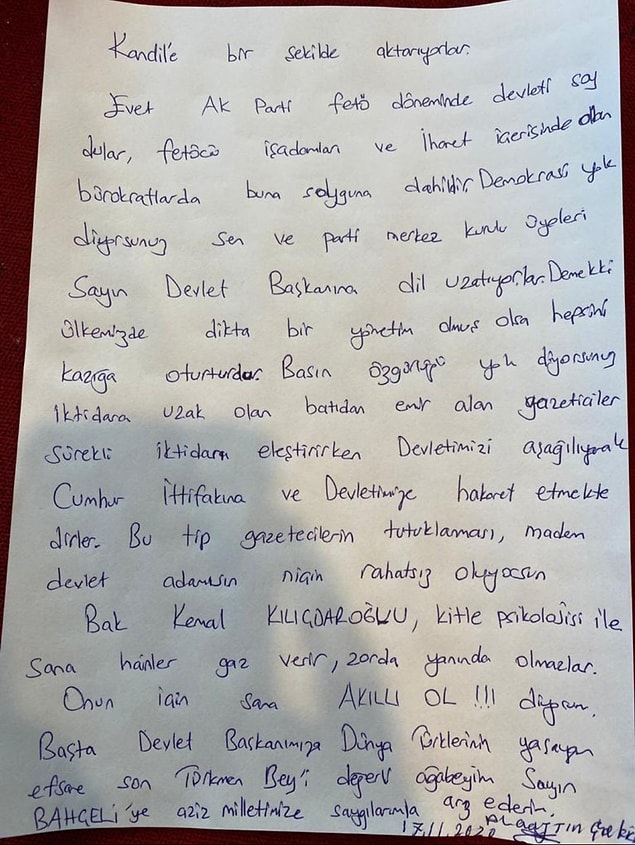 Kandil'e bir şekilde aktarıyorlar.
Evet AK Parti fetö döneminde devleti soy
dular, fetöcü işadamları ve İhanet içerisinde olan
bürokratlarda buna soyguna dahildir. Demokrasi yok
diyorsunuz sen ve parti merkez kurulu üyeleri
Sayın Devlet Başkanına dil uzatıyorlar. Demekki
ülkemizde dikta bir yönetim olmuş olsa hepsini
kazığa oturturdar. Basın özgürlüğü yok diyorsunuz
iktidara uzak olan batıdan emir alan gazeticiler
sürekli iktidarı eleştirirken Devletimizi aşağılıyarak
Cumhur İttifakına ve Devletimize hakaret etmekte
dirler. Bu tip gazetecilerin tutuklaması, madem
devlet adamısın niçin rahatsız oluyorsun
Bak Kemal KILIÇDAROĞLU, kitle psikolojisi ile
sana hainler gaz verir, zorda yanında olmazlar.
Onun için sana AKILLI OL !!! diyorum.
Başta Devlet Başkanımıza Dünya Türklerinin yaşayan
efsane son Türkmen Bey'i değerli ağabeyim Sayın
BAHÇELİ'ye aziz milletimize saygılarımla arz ederim.
17.11.2020